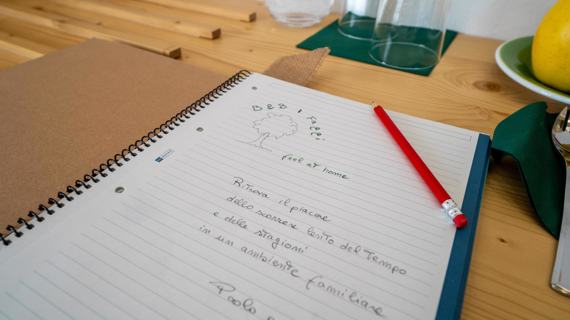 B&B I Poderi
feel at home
Ritrova il piacere
dello scorrere lento del Tempo
e delle stagioni
in un ambiente familiare
Paolo